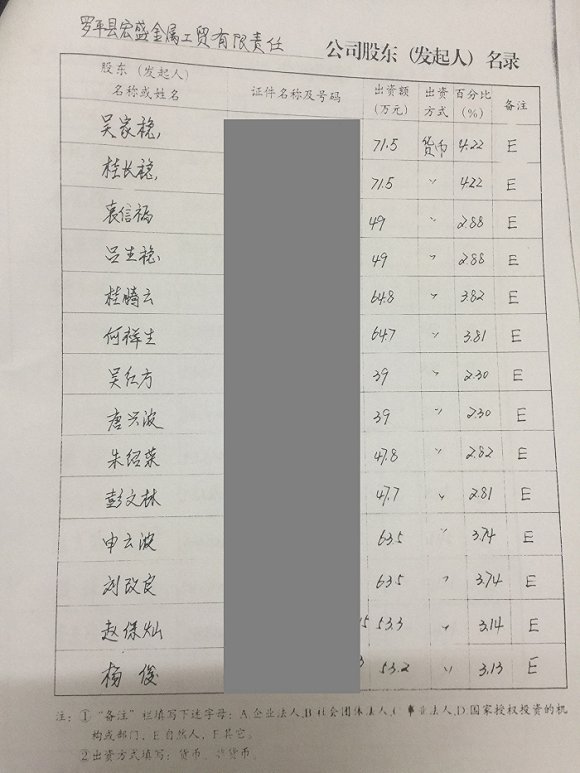 罗平县宏盛金属工贸有限责任 公司股东（发起人）名录
股东（发起人）名称或姓名 证件名称及号码 出资额（万元） 出资方式 百分比（%） 备注
吴家稳 71.5 货币 4.22 E
桂长稳 71.5 〃 4.22 E
袁信福 49 〃 2.88 E
吕生稳 49 〃 2.88 E
桂腾云 64.8 〃 3.82 E
何祥生 64.7 〃 3.81 E
吴红方 39 〃 2.30 E
唐兴波 39 〃 2.30 E
朱绍荣 47.8 〃 2.82 E
彭文林 47.7 〃 2.81 E
申云波 63.5 〃 3.74 E
刘改良 63.5 〃 3.74 E
赵保灿 53.3 〃 3.14 E
杨俊 53.2 〃 3.13 E
注：①“备注”栏填写下述字母：A.企业法人,B.社会团体法人,C.事业法人,D.国家授权投资的机
构或部门,E.自然人,F.其它。
②出资方式填写：货币、非货币